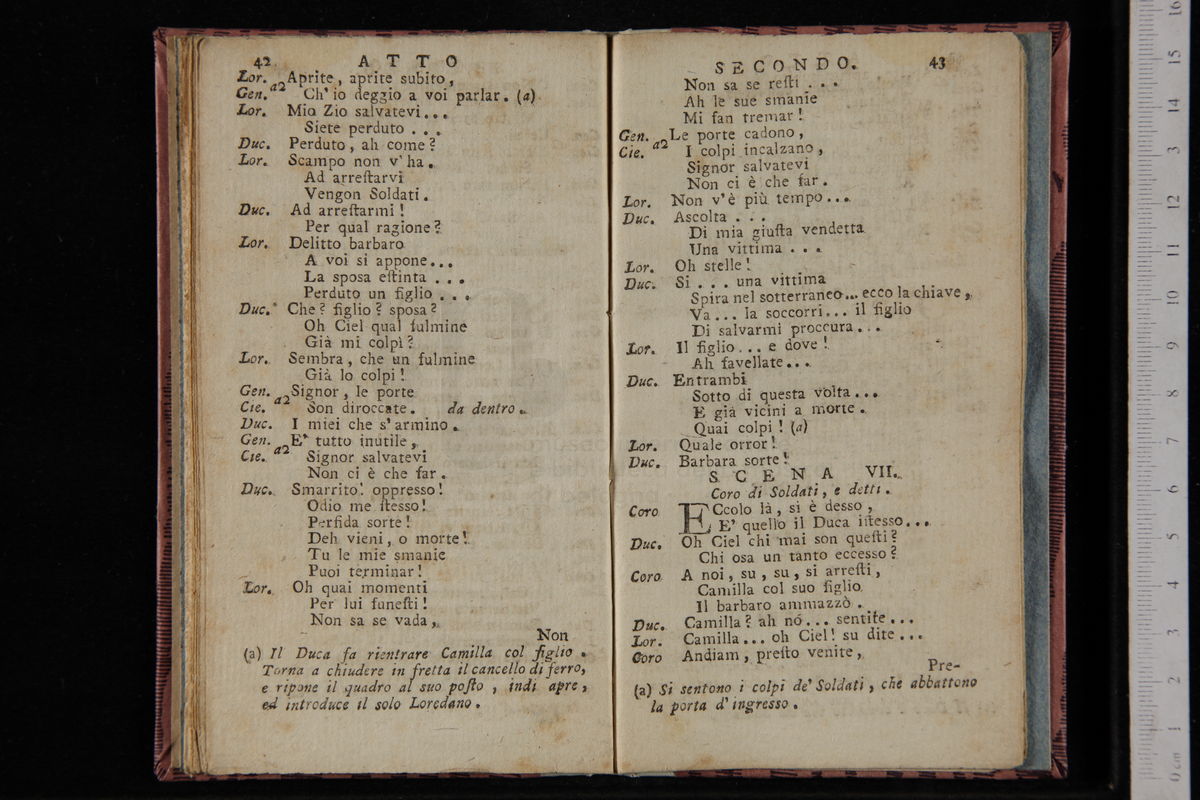 42 ATTO
Lor. a2 Aprite, aprite subito,
Gen. Ch' io deggio a voi parlar. (a)
Lor. Mio Zio salvatevi...
Siete perduto ...
Duc. Perduto, ah come?
Lor. Scampo non v' ha.
Ad arreſtarvi
Vengon Soldati.
Duc. Ad arreſtarmi!
Per qual ragione?
Lor. Delitto barbaro
A voi si appone...
La sposa eſtinta ...
Perduto un figlio ...
Duc. Che? figlio? sposa?
Oh Ciel qual fulmine
Già mi colpì?
Lor. Sembra, che un fulmine
Già lo colpì!
Gen. a2 Signor, le porte
Cie. Son diroccate. da dentro.
Duc. I miei che s' armino.
Gen. a2 E' tutto inutile,
Cie. Signor salvatevi
Non ci è che far.
Duc. Smarrito! oppresso!
Odio me ſtesso!
Perfida sorte!
Deh vieni, o morte!
Tu le mie smanie
Puoi terminar!
Lor. Oh quai momenti
Per lui funeſti!
Non sa se vada,
Non
(a) Il Duca fa rientrare Camilla col figlio.
Torna a chiudere in fretta il cancello di ferro,
e ripone il quadro al suo poſto, indi apre,
ed introduce il solo Loredano.
SECONDO. 43
Non sa se reſti ...
Ah le sue smanie
Mi fan tremar!
Gen. a2 Le porte cadono,
Cie. I colpi incalzano,
Signor salvatevi
Non ci è che far.
Lor. Non v'è più tempo...
Duc. Ascolta ...
Di mia giuſta vendetta
Una vittima ...
Lor. Oh stelle!
Duc. Si ... una vittima
Spira nel sotterraneo... ecco la chiave,
Va... la soccorri... il figlio
Di salvarmi proccura...
Lor. Il figlio... e dove!
Ah favellate...
Duc. Entrambi
Sotto di questa volta...
E già vicini a morte.
Quai colpi! (a)
Lor. Quale orror!
Duc. Barbara sorte!
SCENA VII.
Coro di Soldati, e detti.
Coro ECcolo là, si è desso,
E' quello il Duca iſtesso...
Duc. Oh Ciel chi mai son queſti?
Chi osa un tanto eccesso?
Coro A noi, su, su, si arreſti,
Camilla col suo figlio
Il barbaro ammazzò.
Duc. Camilla? ah nò... sentite...
Lor. Camilla... oh Ciel! su dite...
Coro Andiam, preſto venite,
Pre-
(a) Si sentono i colpi de' Soldati, che abbattono
la porta d' ingresso.
0 cm 1 2 3 4 5 6 7 8 9 10 11 12 13 14 15 16